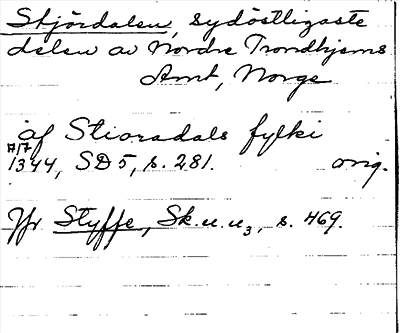 Stjördalen, sydöstligaste
delen av Nordre Trondhjems
Amt, Norge
af Stioradals fylki
17/7
1344, SD 5, s. 281. orig.
Jfr Styffe, Sk. u. u3, s. 469.